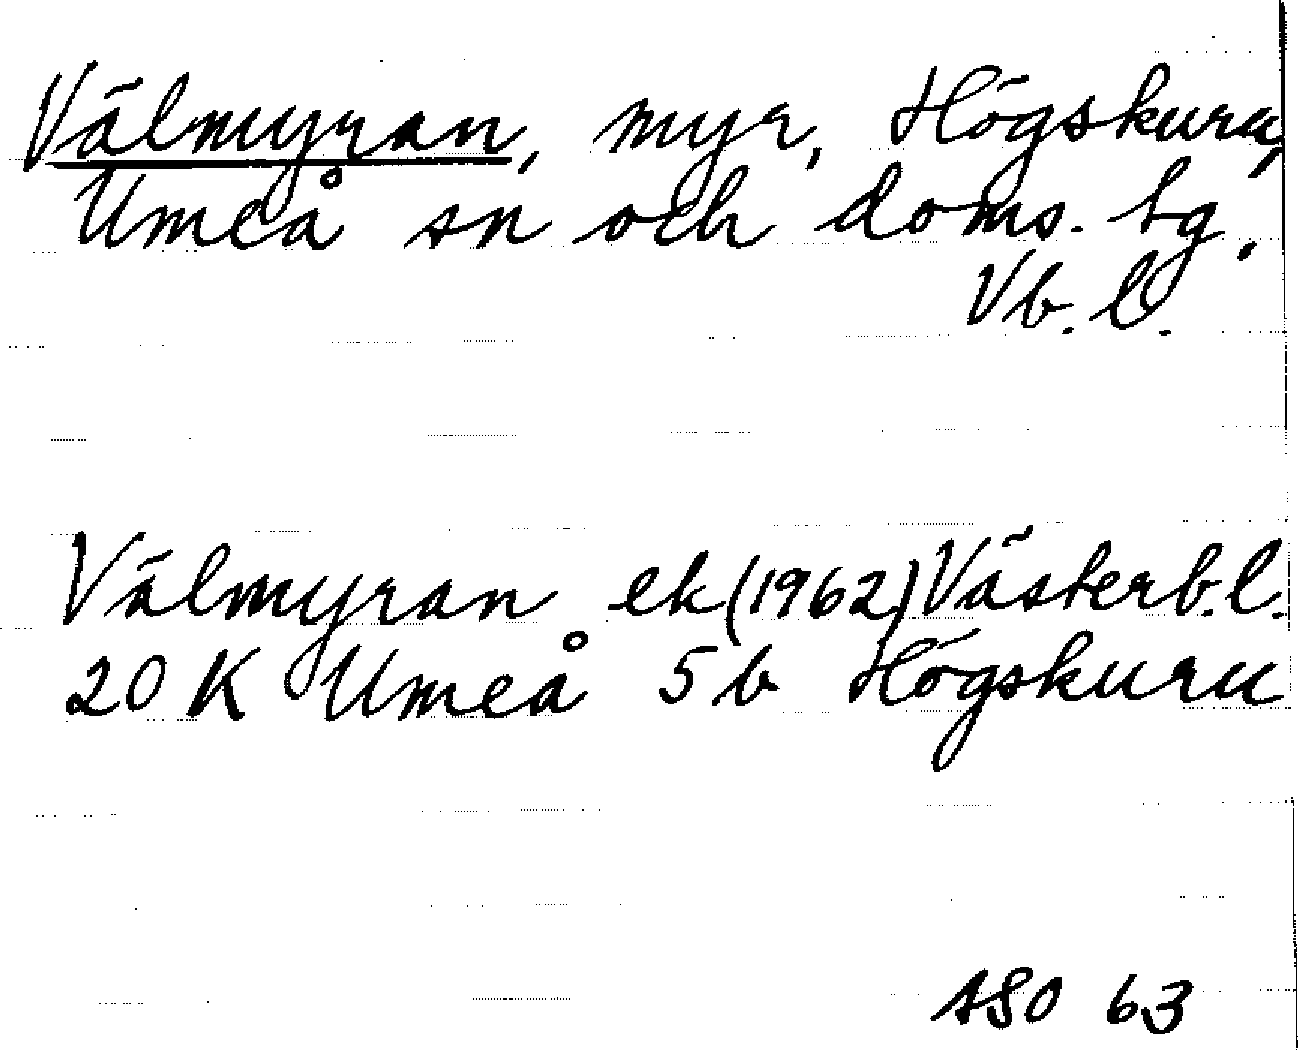 Välmyran, myr, Högskuru,
Umeå sn och doms. tg,
Vb. l.
Välmyran ek (1962) Västerb. l.
20 K Umeå 5 b Högskuru
ASO 63